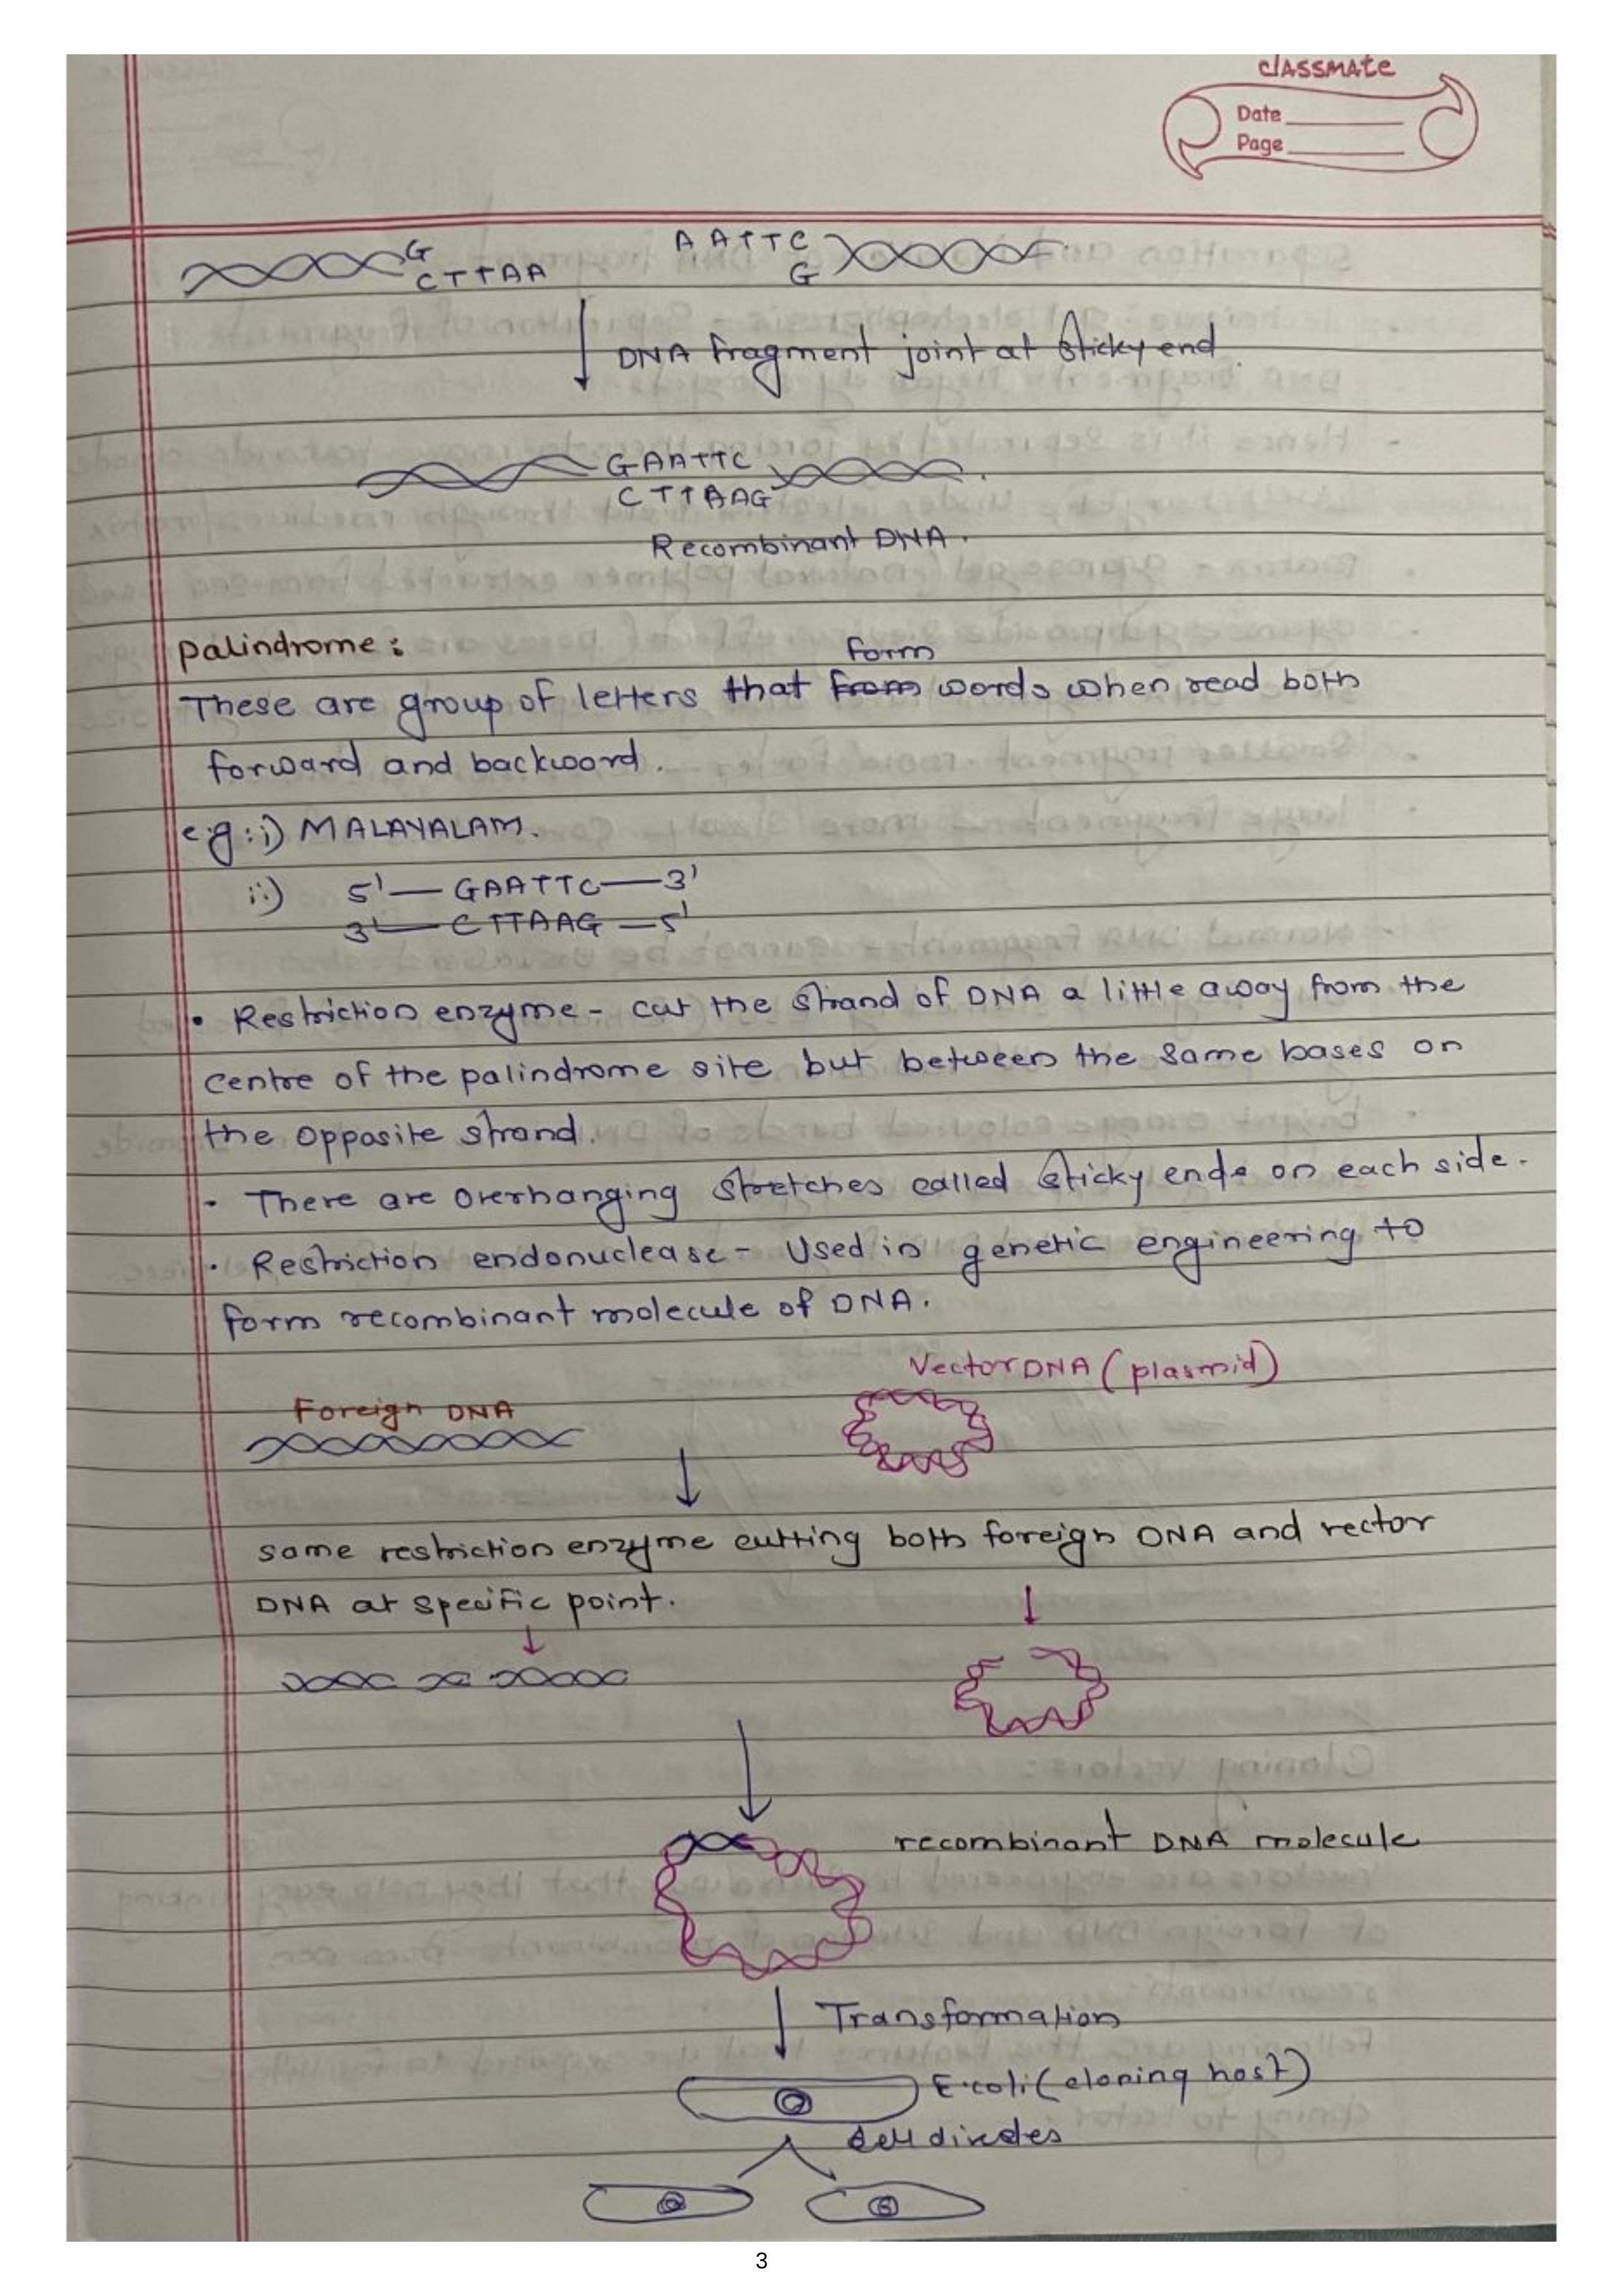 classmate
Date
Page
G AATTC
CTTAA G
DNA fragment joint at sticky end.
GAATTC
CTTAAG
Recombinant DNA.
palindrome:
form
These are group of letters that from words when read both
forward and backword.
e.g:i) MALAYALAM.
ii) 5'—GAATTC—3'
3'—CTTAAG—5'
• Restriction enzyme - cut the strand of DNA a little away from the
centre of the palindrome site but between the same bases on
the opposite strand.
• There are overhanging stretches called sticky ends on each side.
• Restriction endonuclease - Used in genetic engineering to
form recombinant molecule of DNA.
Vector DNA (plasmid)
Foreign DNA
same restriction enzyme cutting both foreign DNA and vector
DNA at specific point.
recombinant DNA molecule
Transformation
E.coli (cloning host)
cell divides
3